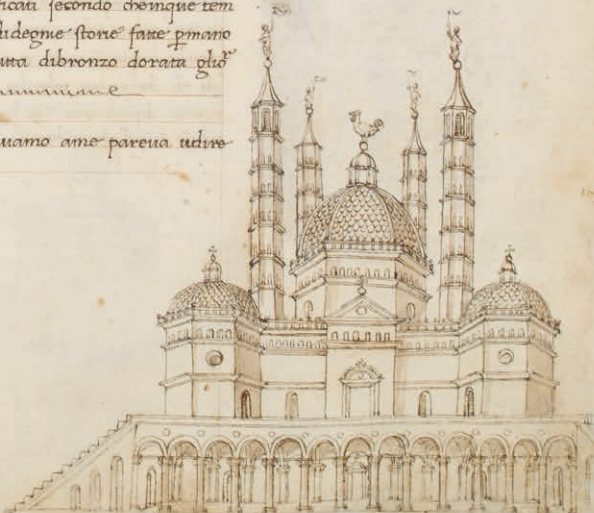 ficati secondo cheinque tem
didegnie storie fatte p̲mano
utta dibronzo dorata
uamo ame pareua udire